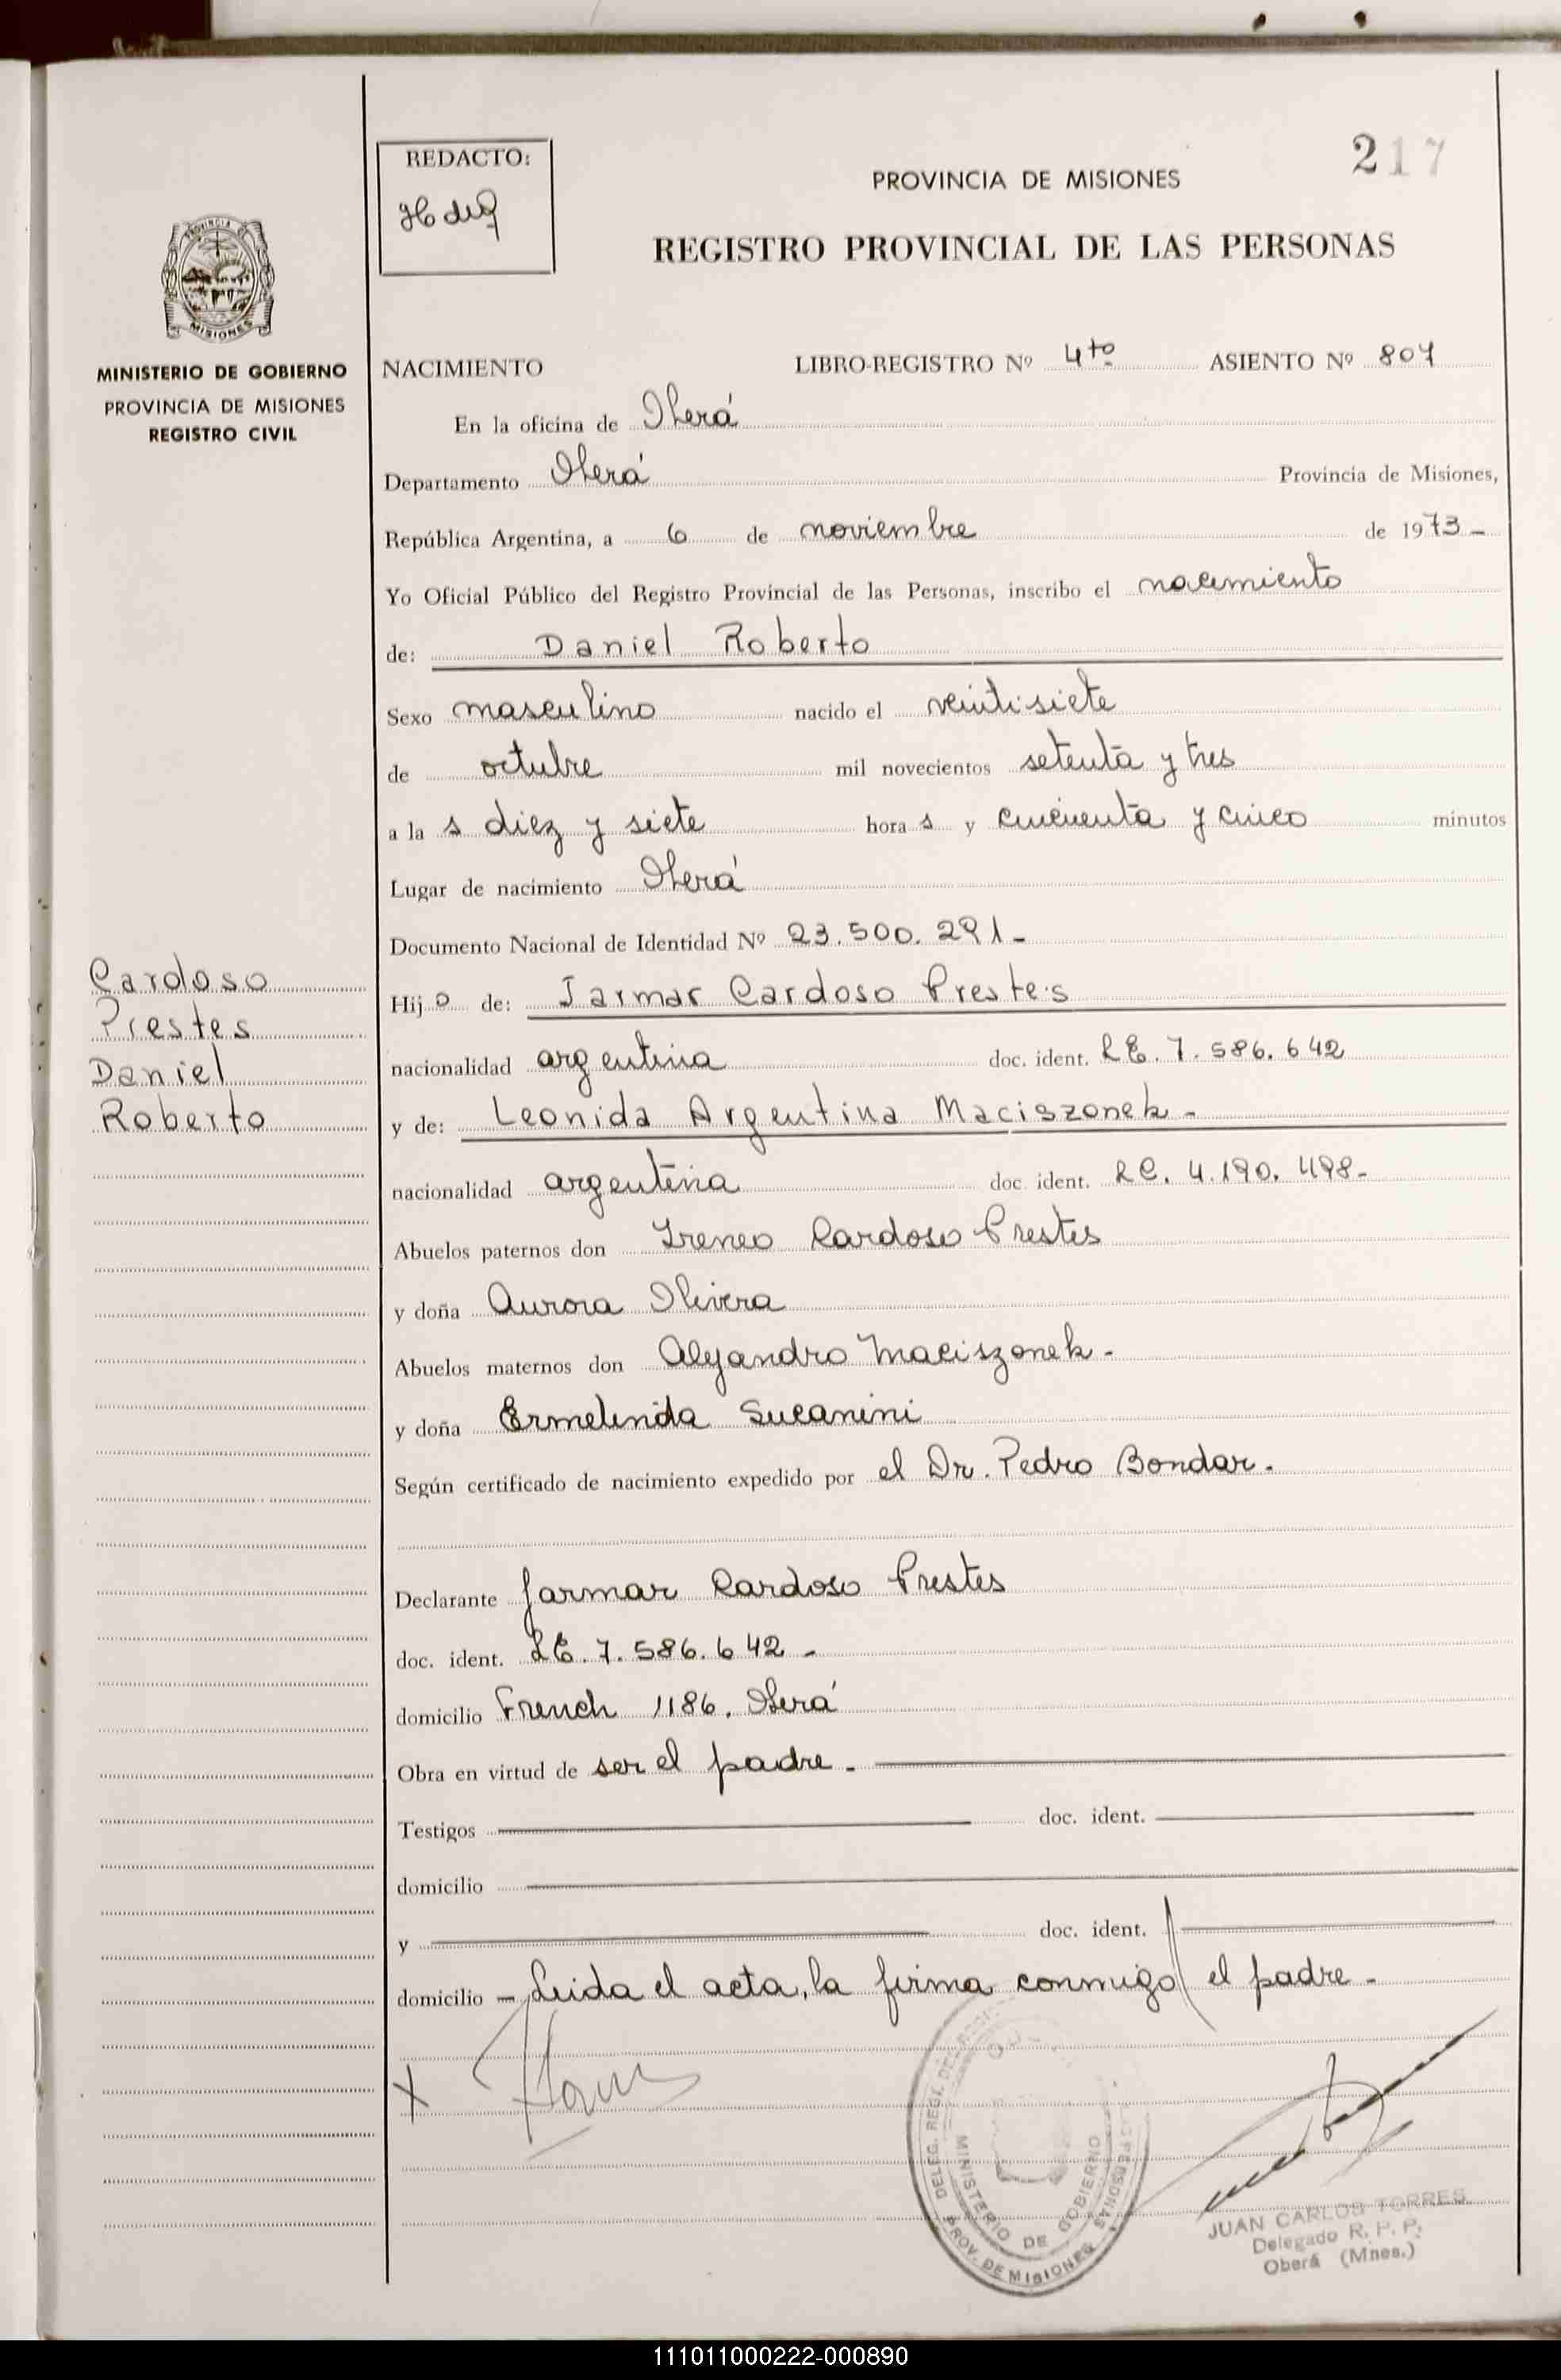 217
REDACTO:
PROVINCIA DE MISIONES
REGISTRO PROVINCIAL DE LAS PERSONAS
PROVINCIA DE
MISIONES
MINISTERIO DE GOBIERNO
PROVINCIA DE MISIONES
REGISTRO CIVIL
NACIMIENTO LIBRO-REGISTRO Nº 4to ASIENTO Nº 807
En la oficina de Oberá
Departamento Oberá Provincia de Misiones,
República Argentina, a 6 de noviembre de 1973-
Yo Oficial Público del Registro Provincial de las Personas, inscribo el nacimiento
de: Daniel Roberto
Sexo masculino nacido el veintisiete
de octubre mil novecientos setenta y tres
a la s diez y siete hora s y cincuenta y cinco minutos
Lugar de nacimiento Oberá
Documento Nacional de Identidad Nº 23.500.291-
Cardoso
Prestes
Daniel
Roberto
Hij o de: Jarmar Cardoso Prestes
nacionalidad argentina doc. ident. LE. 7.586.642
y de: Leonida Argentina Maciszonek-
nacionalidad argentina doc. ident. LC. 4.190.498-
Abuelos paternos don Ireneo Cardoso Prestes
y doña Aurora Olivera
Abuelos maternos don Alejandro Maciszonek-
y doña Ermelinda Sucanini
Según certificado de nacimiento expedido por el Dr. Pedro Bondar.
Declarante Jarmar Cardoso Prestes
doc. ident. LE. 7.586.642-
domicilio French 1186. Oberá
Obra en virtud de ser el padre-
Testigos doc. ident.
domicilio
y doc. ident.
domicilio - Leida el acta, la firma conmigo el padre-
MINISTERIO DE GOBIERNO
PROV. DE MISIONES
JUAN CARLOS TORRES
Delegado R. P. P.
Oberá (Mnes.)
111011000222-000890